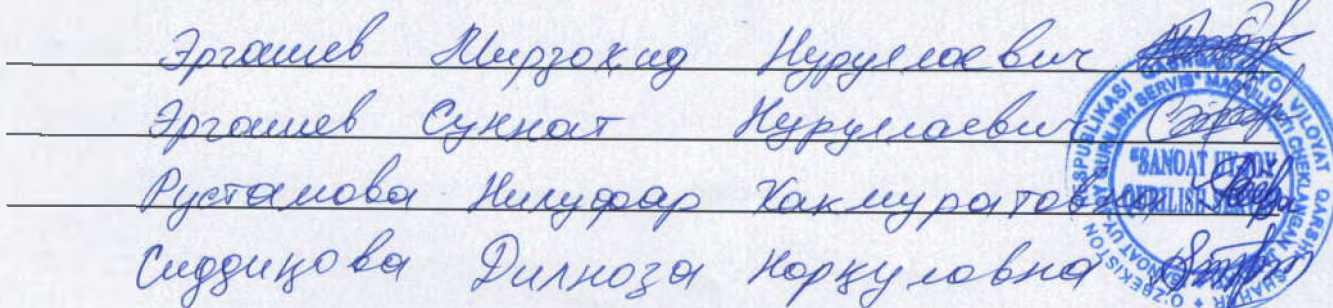 Эргашев Мирзохид Нуруллаевич
Эргашев Суннат Нуруллаевич
Рустамова Нилуфар Хакмуратовна
Сиддиқова Дилноза Норқуловна
"SANOAT UY-JOY
QURILISH SERVIS"